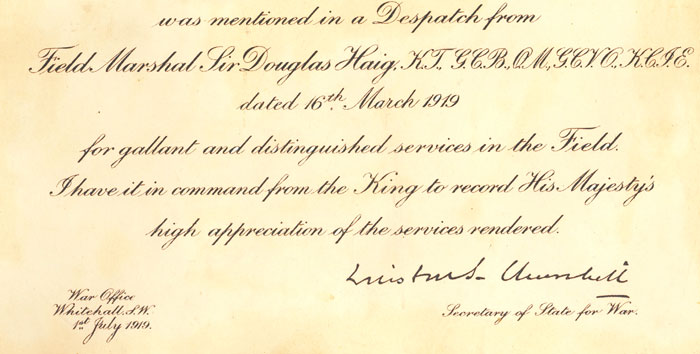 was mentioned in a Despatch from
Field Marshal Sir Douglas Haig, K.T., G.C.B., O.M., G.C.V.O., K.C.I.E.
dated 16th March 1919
for gallant and distinguished services in the Field.
I have it in command from the King to record His Majesty's
high appreciation of the services rendered.
Winston S Churchill
War Office
Whitehall, S.W.
1st July 1919.
Secretary of State for War.